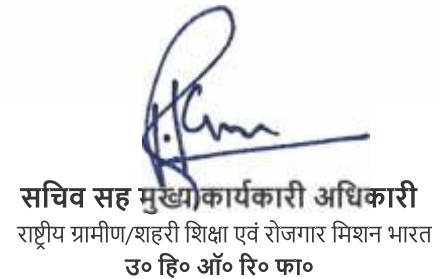 सचिव सह मुख्य कार्यकारी अधिकारी
राष्ट्रीय ग्रामीण/शहरी शिक्षा एवं रोजगार मिशन भारत
उ० हि० ऑ० रि० फा०